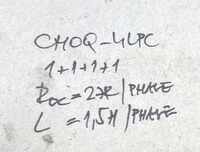 CHOQ-4LPC
1+1+1+1
RDC=27R/PHASE
L=1,5H/PHASE